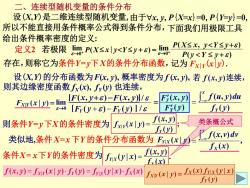 二、连续型随机变量的条件分布
设(X,Y)是二维连续型随机变量,由于∀x, y, P{X=x}=0, P{Y=y}=0,
所以不能直接用条件概率公式得到条件分布,下面我们用极限工具
给出条件概率密度的定义:
定义2 若极限 lim_{ε→0⁺} P{X≤x | y<Y≤y+ε} = lim_{ε→0⁺} P{X≤x, y<Y≤y+ε} / P{y<Y≤y+ε}
存在,则称它为条件Y=y下X的条件分布函数,记为 F_{X|Y}(x|y).
设(X,Y)的分布函数为F(x,y), 概率密度为f(x,y), 若f(x,y)连续,
则其边缘密度函数f_X(x), f_Y(y) 也连续,
F_{X|Y}(x|y) = lim_{ε→0⁺} {[F(x,y+ε)−F(x,y)]/ε} / {[F_Y(y+ε)−F_Y(y)]/ε} = F'_y(x,y) / F'_Y(y) = ∫_{-∞}^{x} f(u,y)du / f_Y(y)
则条件Y=y下X的条件密度为 f_{X|Y}(x|y) = f(x,y) / f_Y(y). 类条概公式
类似地,条件X=x下Y的条件分布函数为 F_{Y|X}(y|x) = ∫_{-∞}^{y} f(x,v)dv / f_X(x),
条件X=x下Y的条件密度为 f_{Y|X}(y|x) = f(x,y) / f_X(x).
f(x,y) = f_{X|Y}(x|y)·f_Y(y) = f_{Y|X}(y|x)·f_X(x) f_{X|Y}(x|y) = f_X(x) f_{Y|X}(y|x) / f_Y(y)